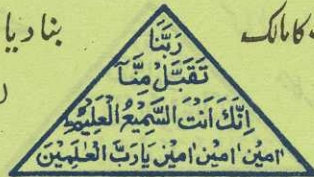 کا مالک
بنا دیا
رَبَّنَا
تَقَبَّلْ مِنَّآ
اِنَّكَ اَنْتَ السَّمِيْعُ الْعَلِيْمُ
اٰمِيْن اٰمِيْن اٰمِيْن يَارَبَّ الْعٰلَمِيْنَ